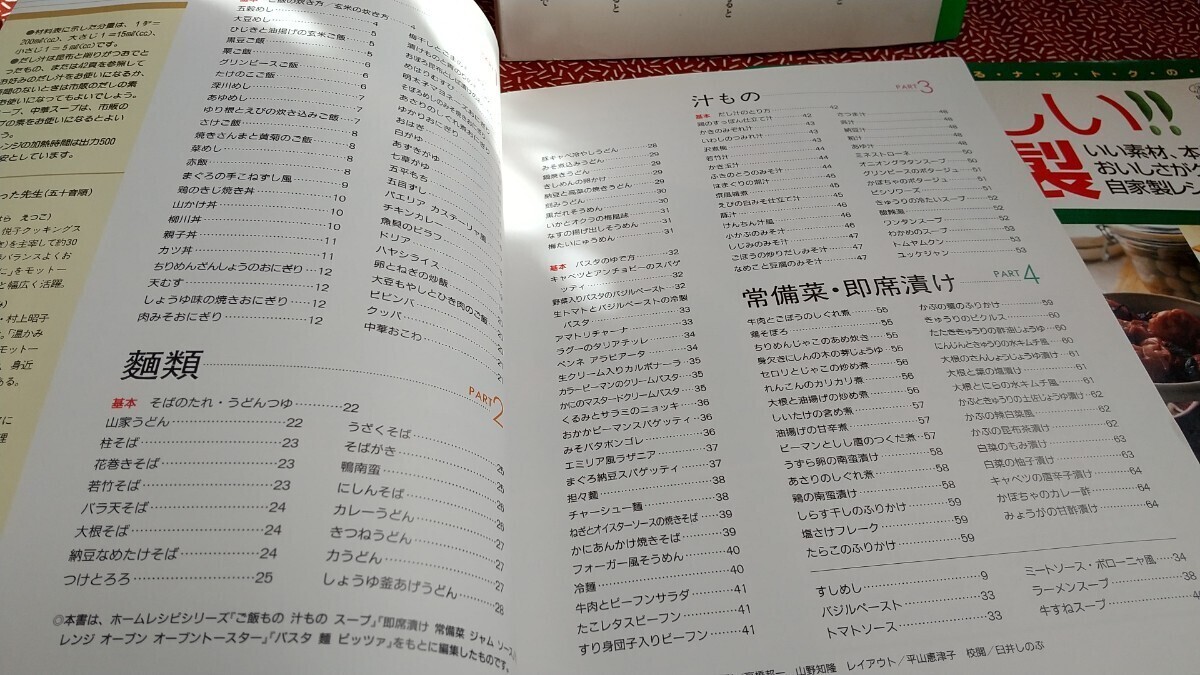 ●材料表に示した分量は、1カップ=
200㎖(cc)、大さじ1=15㎖(cc)、
小さじ1=5㎖(cc)です。
安としています。
基本 ご飯の炊き方/玄米の炊き方
五穀めし 4
大豆めし 4
ひじきと油揚げの玄米ご飯 5
黒豆ご飯 5
栗ご飯 5
グリンピースご飯 6
たけのこご飯 6
深川めし 7
あゆめし 7
ゆり根とえびの炊き込みご飯 7
さけご飯 8
焼きさんまと黄菊のご飯 8
菜めし 8
赤飯 8
まぐろの手こねずし風 9
鶏のきじ焼き丼 10
山かけ丼 10
柳川丼 10
親子丼 11
カツ丼 11
ちりめんざんしょうのおにぎり 12
天むす 12
しょうゆ味の焼きおにぎり 12
肉みそおにぎり 12
おはぎ
あずきがゆ
白がゆ
七草がゆ
五平もち
五目ずし
パエリア カステーリャ風
チキンカレー
魚貝のピラフ
ドリア
ハヤシライス
卵とねぎの炒飯
大豆もやしとひき肉のご飯
ビビンバ
クッパ
中華おこわ
麵類
PART 2
基本 そばのたれ・うどんつゆ 22
山家うどん 22
柱そば 23
花巻きそば 23
若竹そば 23
バラ天そば 24
大根そば 24
納豆なめたけそば 24
つけとろろ 25
うざくそば
そばがき
鴨南蛮
にしんそば
カレーうどん
きつねうどん
力うどん
しょうゆ釜あげうどん 28
◎本書は、ホームレシピシリーズ「ご飯もの 汁もの スープ」「即席漬け 常備菜 ジャム ソース」
レンジ オーブン オーブントースター」「パスタ 麵 ピッツァ」をもとに編集したものです。
豚キャベ冷やしうどん 28
みそ煮込みうどん 29
鍋焼きうどん 29
きしめんの卵かけ 29
納豆と高菜の焼きうどん 29
胡みうどん 30
黒だれそうめん 30
いかとオクラの梅風味 30
なすの揚げ出しそうめん 31
梅たいにゅうめん 31
基本 パスタのゆで方 32
キャベツとアンチョビーのスパゲ
ッティ 32
野菜入りパスタのバジルペースト 32
生トマトとバジルペーストの冷製
パスタ 33
アマトリチャーナ 33
ラグーのタリアテッレ 34
ペンネ アラビアータ 34
生クリーム入りカルボナーラ 35
カラーピーマンのクリームパスタ 35
かにのマスタードクリームパスタ 35
くるみとサラミのニョッキ 36
おかかピーマンスパゲッティ 36
みそバタボンゴレ 36
エミリア風ラザニア 37
まぐろ納豆スパゲッティ 37
担々麺 38
チャーシュー麺 38
ねぎとオイスターソースの焼きそば 39
かにあんかけ焼きそば 39
フォーガー風そうめん 40
冷麺 40
牛肉とビーフンサラダ 41
たこレタスビーフン 41
すり身団子入りビーフン 41
汁もの
PART 3
基本 だし汁のとり方 42
鶏のすっぽん仕立て汁 42
かきのみぞれ汁 43
いわしのつみれ汁 43
沢煮椀 44
若竹汁 44
かき玉汁 44
ふきのとうのみそ汁 44
はまぐりの潮汁 45
えびの白みそ仕立て汁 45
豚汁 46
けんちん汁風 46
小かぶのみそ汁 47
しじみのみそ汁 47
ごぼうの炒りだしみそ汁 47
なめこと豆腐のみそ汁 47
さつま汁 48
呉汁 48
納豆汁 48
粕汁 48
あゆ汁
ミネストローネ 50
オニオングラタンスープ 50
グリンピースのポタージュ 51
かぼちゃのポタージュ 51
ビシソワーズ 51
きゅうりの冷たいスープ 52
酸辣湯 52
ワンタンスープ 52
わかめのスープ 53
トムヤムクン 53
ユッケジャン 53
常備菜・即席漬け
PART 4
牛肉とごぼうのしぐれ煮 55
鶏そぼろ 55
ちりめんじゃこのあめ炊き 55
身欠きにしんの木の芽じょうゆ 56
セロリとじゃこの炒め煮 56
れんこんのカリカリ煮 56
大根と油揚げの炒め煮 56
しいたけの含め煮 57
油揚げの甘辛煮 57
ピーマンとしし唐のつくだ煮 57
うずら卵の南蛮漬け 58
あさりのしぐれ煮 58
鶏の南蛮漬け 58
しらす干しのふりかけ 59
塩さけフレーク 59
たらこのふりかけ 59
かぶの葉のふりかけ 59
きゅうりのピクルス 60
たたききゅうりの酢油じょうゆ 60
にんじんときゅうりの水キムチ風 60
大根のさんしょうじょうゆ漬け 61
大根と葉の塩漬け 61
大根とにらの水キムチ風 61
かぶときゅうりの土佐じょうゆ漬け 62
かぶの辣白菜風 62
かぶの昆布茶漬け 62
白菜のもみ漬け 63
白菜の柚子漬け 63
キャベツの唐辛子漬け 64
かぼちゃのカレー酢 64
みょうがの甘酢漬け 64
すしめし 9
バジルペースト 33
トマトソース 33
ミートソース・ボローニャ風 34
ラーメンスープ 38
牛すねスープ
山野知隆 レイアウト/平山恵津子 校閲/臼井しのぶ
しい!!
製
いい素材、本
おいしさがぐ
自家製レシ